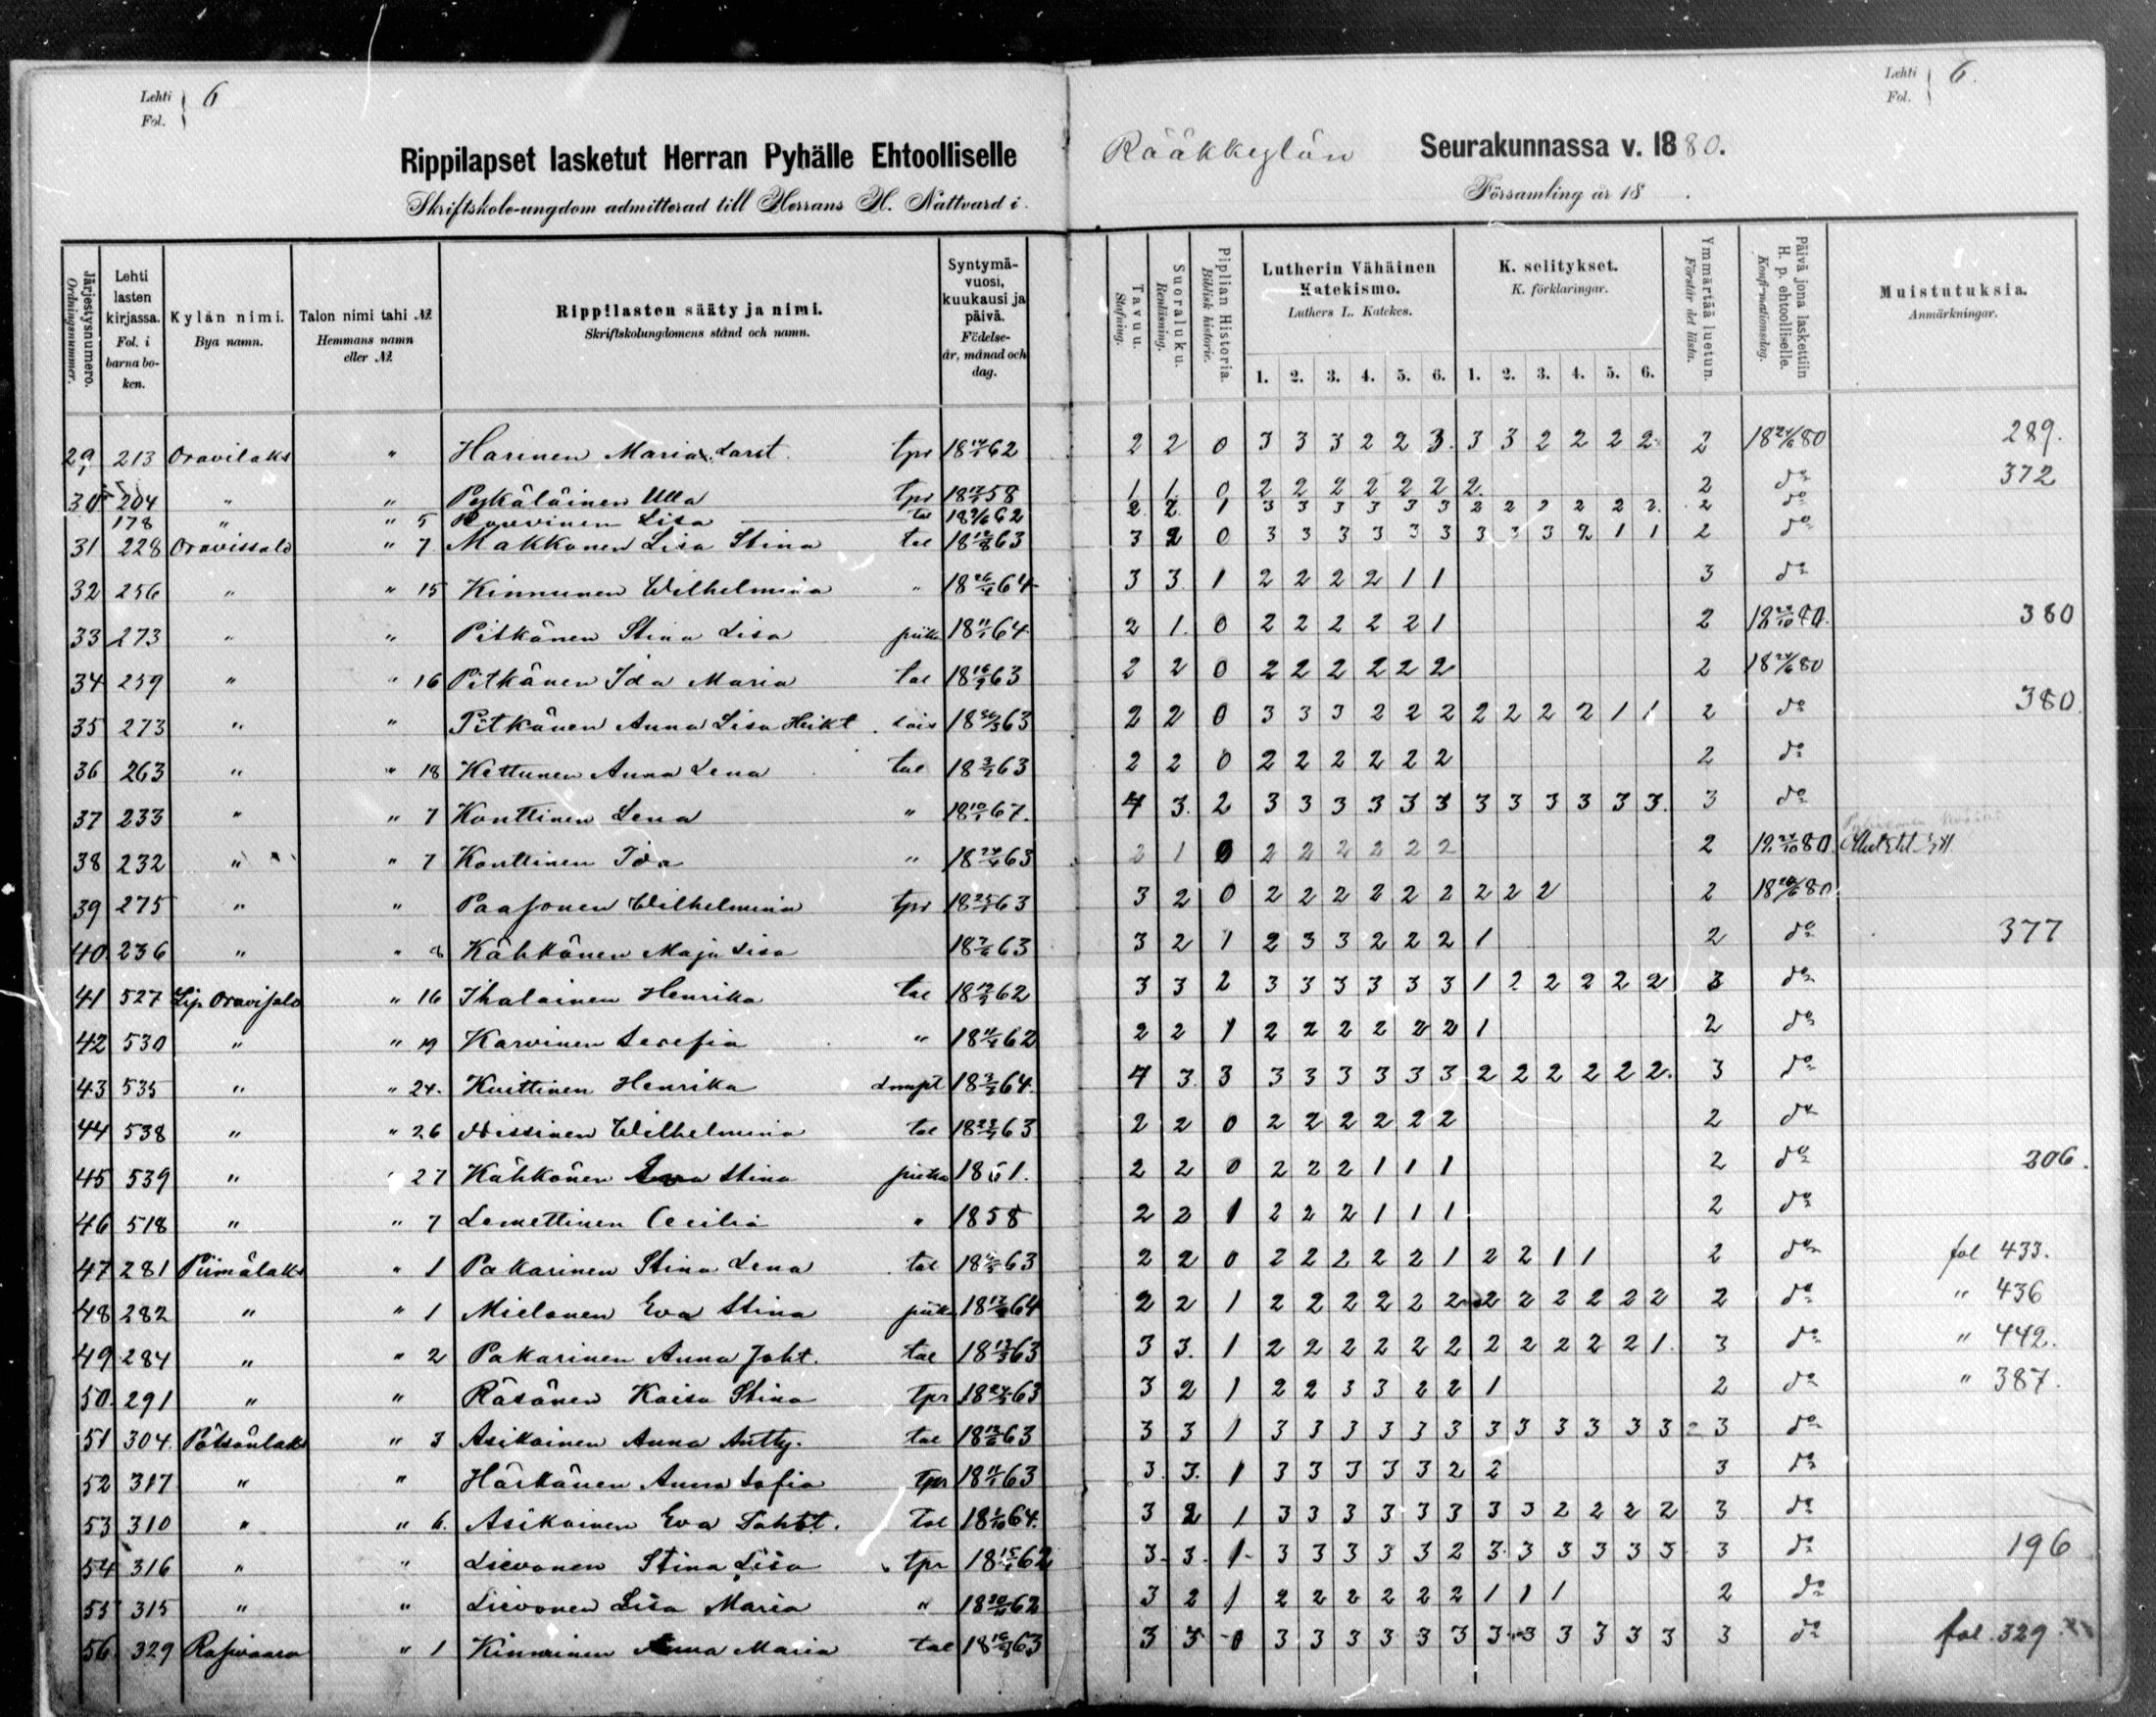 Lehti Fol. } 6
Lehti Fol. } 6.
Rippilapset lasketut Herran Pyhälle Ehtoolliselle Rääkkylän Seurakunnassa v. 1880.
Skriftskole-ungdom admitterad till Herrans H. Nattvard i Församling år 18 .
Järjestysnumero. Ordningsnummer. | Lehti lasten kirjassa. Fol. i barnaboken. | Kylän nimi. Bya namn. | Talon nimi tahi № Hemmans namn eller № | Rippilasten sääty ja nimi. Skriftskolungdomens stånd och namn. | Syntymävuosi, kuukausi ja päivä. Födelseår, månad och dag. | Tavuu. Stafning. | Suoraluku. Renläsning. | Piplian Historia. Biblisk historie. | Lutherin Vähäinen Katekismo. Luthers L. Katekes. 1. 2. 3. 4. 5. 6. | K. selitykset. K. förklaringar. 1. 2. 3. 4. 5. 6. | Ymmärtää luetun. Förstår det lästa. | Päivä jona laskettiin H. p. ehtoolliselle. Konfirmationsdag. | Muistutuksia. Anmärkningar.
29 213 Oravilaks " Harinen Maria Larst. tpr 62 2 2 0 3 3 3 2 2 3. 3 3 2 2 2 2 2 18 24/6 80 289.
30 204 " " Pyykäläinen Ulla tpr 58 1 1 0 2 2 2 2 2 2 2. 2 do 372
178 " " 5 Lisa tal 62 2 2 1 3 3 3 3 3 3 2 2 2 2 2 2. 2 do
31 228 Oravissalo " 7 Makkonen Lisa Stina tal 63 3 2 0 3 3 3 3 3 3 3 3 3 2 1 1 2 do
32 256 " " 15 Kinnunen Wilhelmina " 64 3 3. 1 2 2 2 2 1 1 3 do
33 273 " " Pitkänen Stina Lisa piika 64 2 1. 0 2 2 2 2 2 1 2 80. 380
34 259 " " 16 Pitkänen Ida Maria tal 63 2 2 0 2 2 2 2 2 2 2 18 24/6 80
35 273 " " Pitkänen Anna Lisa Heikt. lois 63 2 2 0 3 3 3 2 2 2 2 2 2 2 1 1 2 do 380.
36 263 " " 18 Kettunen Anna Lena tal 63 2 2 0 2 2 2 2 2 2 2 do
37 233 " " 7 Konttinen Lena " 67. 4 3. 2 3 3 3 3 3 3 3 3 3 3 3 3. 3 do
38 232 " " 7 Konttinen Ida " 63 2 1 0 2 2 2 2 2 2 2 80.
39 275 " " Paasonen Wilhelmina tpr 63 3 2 0 2 2 2 2 2 2 2 2 2 2 80.
40 236 " " 8 Kähkönen Maja Lisa 63 3 2 1 2 3 3 2 2 2 1 2 do 377
41 527 Lip. Oravisalo " 16 Ihalainen Henrika tal 62 3 3 2 3 3 3 3 3 3 1 2 2 2 2 2 3 do
42 530 " " 19 Karvinen Serefia " 62 2 2 1 2 2 2 2 2 2 1 2 do
43 535 " " 24. Kuittinen Henrika Lmpt 64. 4 3. 3 3 3 3 3 3 3 2 2 2 2 2 2. 3 do
44 538 " " 26 Nissinen Wilhelmina tal 63 2 2 0 2 2 2 2 2 2 2 do
45 539 " " 27 Kähkönen Eva Stina piika 1861. 2 2 0 2 2 2 1 1 1 2 do 206.
46 518 " " 7 Lemettinen Cecilia " 1858 2 2 1 2 2 2 1 1 1 2 do
47 281 Piimälaks " 1 Pakarinen Stina Lena tal 63 2 2 0 2 2 2 2 2 1 2 2 1 1 2 do fol 433.
48 282 " " 1 Mielonen Eva Stina piika 64 2 2 1 2 2 2 2 2 2 2 2 2 2 2 2 2 do " 436
49 284 " " 2 Pakarinen Anna Joht. tal 63 3 3. 1 2 2 2 2 2 2 2 2 2 2 2 1. 3 do " 442.
50. 291 " " Räsänen Kaisa Stina tpr 63 3 2 1 2 2 3 3 2 2 1 2 do " 387.
51 304. Pötsönlaks " 3 Asikainen Anna Antty. tal 63 3 3 1 3 3 3 3 3 3 3 3 3 3 3 3 3 do
52 317 " " Härkänen Anna Sofia tpr 63 3. 3. 1 3 3 3 3 3 2 2 3 do
53 310 " " 6. Asikainen Eva tal 64. 3 2 1 3 3 3 3 3 3 3 3 2 2 2 2 3 do
54 316 " " Lievonen Stina Lisa tpr 62 3. 3. 1 3 3 3 3 3 2 3. 3 3 3 3 3 3 do 196
55 315 " " Lievonen Lisa Maria " 62 3 2 1 2 2 2 2 2 2 1 1 1 2 do
56. 329 Rasivaara " 1 Kinnunen Anna Maria tal 63 3 3 0 3 3 3 3 3 3 3 3 3 3 3 3 3 do fol. 329